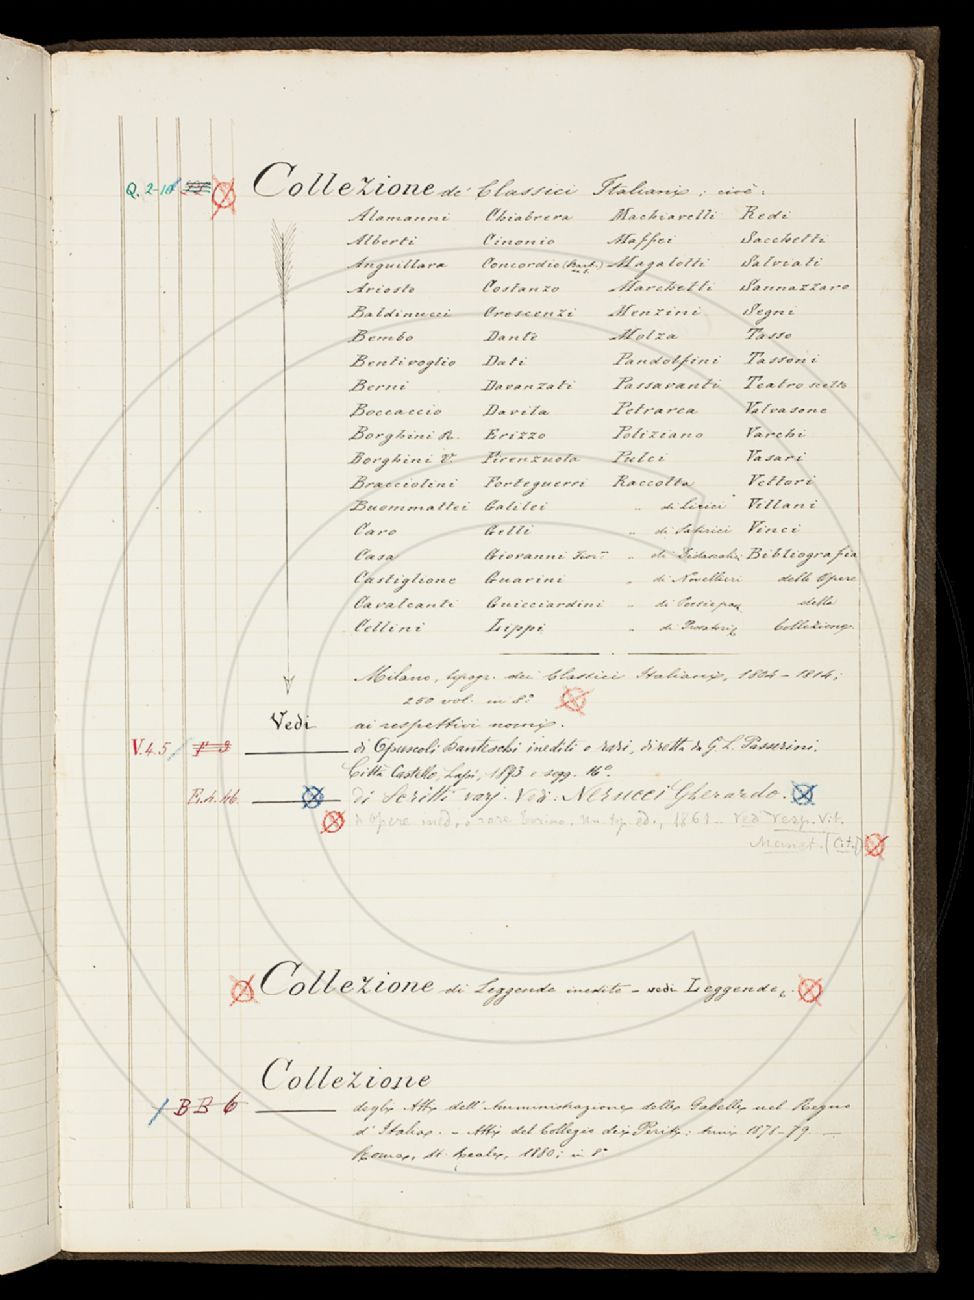 Q. 2-10 Collezione de' Classici Italiani; cioè:
Alamanni Chiabrera Machiavelli Redi
Alberti Cinonio Maffei Sacchetti
Anguillara Concordio Magalotti Salviati
Ariosto Costanzo Marchetti Sannazzaro
Baldinucci Crescenzi Menzini Segni
Bembo Dante Molza Tasso
Bentivoglio Dati Pandolfini Tassoni
Berni Davanzati Passavanti Teatro scelto
Boccaccio Davila Petrarca Valvasone
Borghini R. Erizzo Poliziano Varchi
Borghini V. Firenzuola Pulci Vasari
Bracciolini Forteguerri Raccolta Vettori
Buommattei Galilei " di Lirici Villani
Caro Gelli " di Satirici Vinci
Casa Giovanni Fior.no " di Didascal. Bibliografia
Castiglione Guarini " di Novellieri delle Opere
Cavalcanti Guicciardini " di della
Cellini Lippi " di Prosatori Collezione
Milano, tipogr. dei Classici Italiani, 1804-1814;
250 vol. in 8°
Vedi ai respettivi nomi.
V. 4. 5 di Opuscoli Danteschi inediti o rari, diretta da G. L. Passerini.
Città Castello, Lapi, 1893 e segg. 16°.
B. 4. 46. di Scritti varj. Vedi: Nerucci Gherardo.
di Opere ined. o rare Torino. Un. tip. ed., 1861 - Ved resp. Vit.
(Cit.)
Collezione di Leggende inedite - vedi Leggende.
Collezione
BB 6 degli Atti dell'Amministrazione delle Gabelle nel Regno
d'Italia. - Atti del Collegio dei Periti: Anni 1878-79
Roma, st. Reale, 1880; in 8°